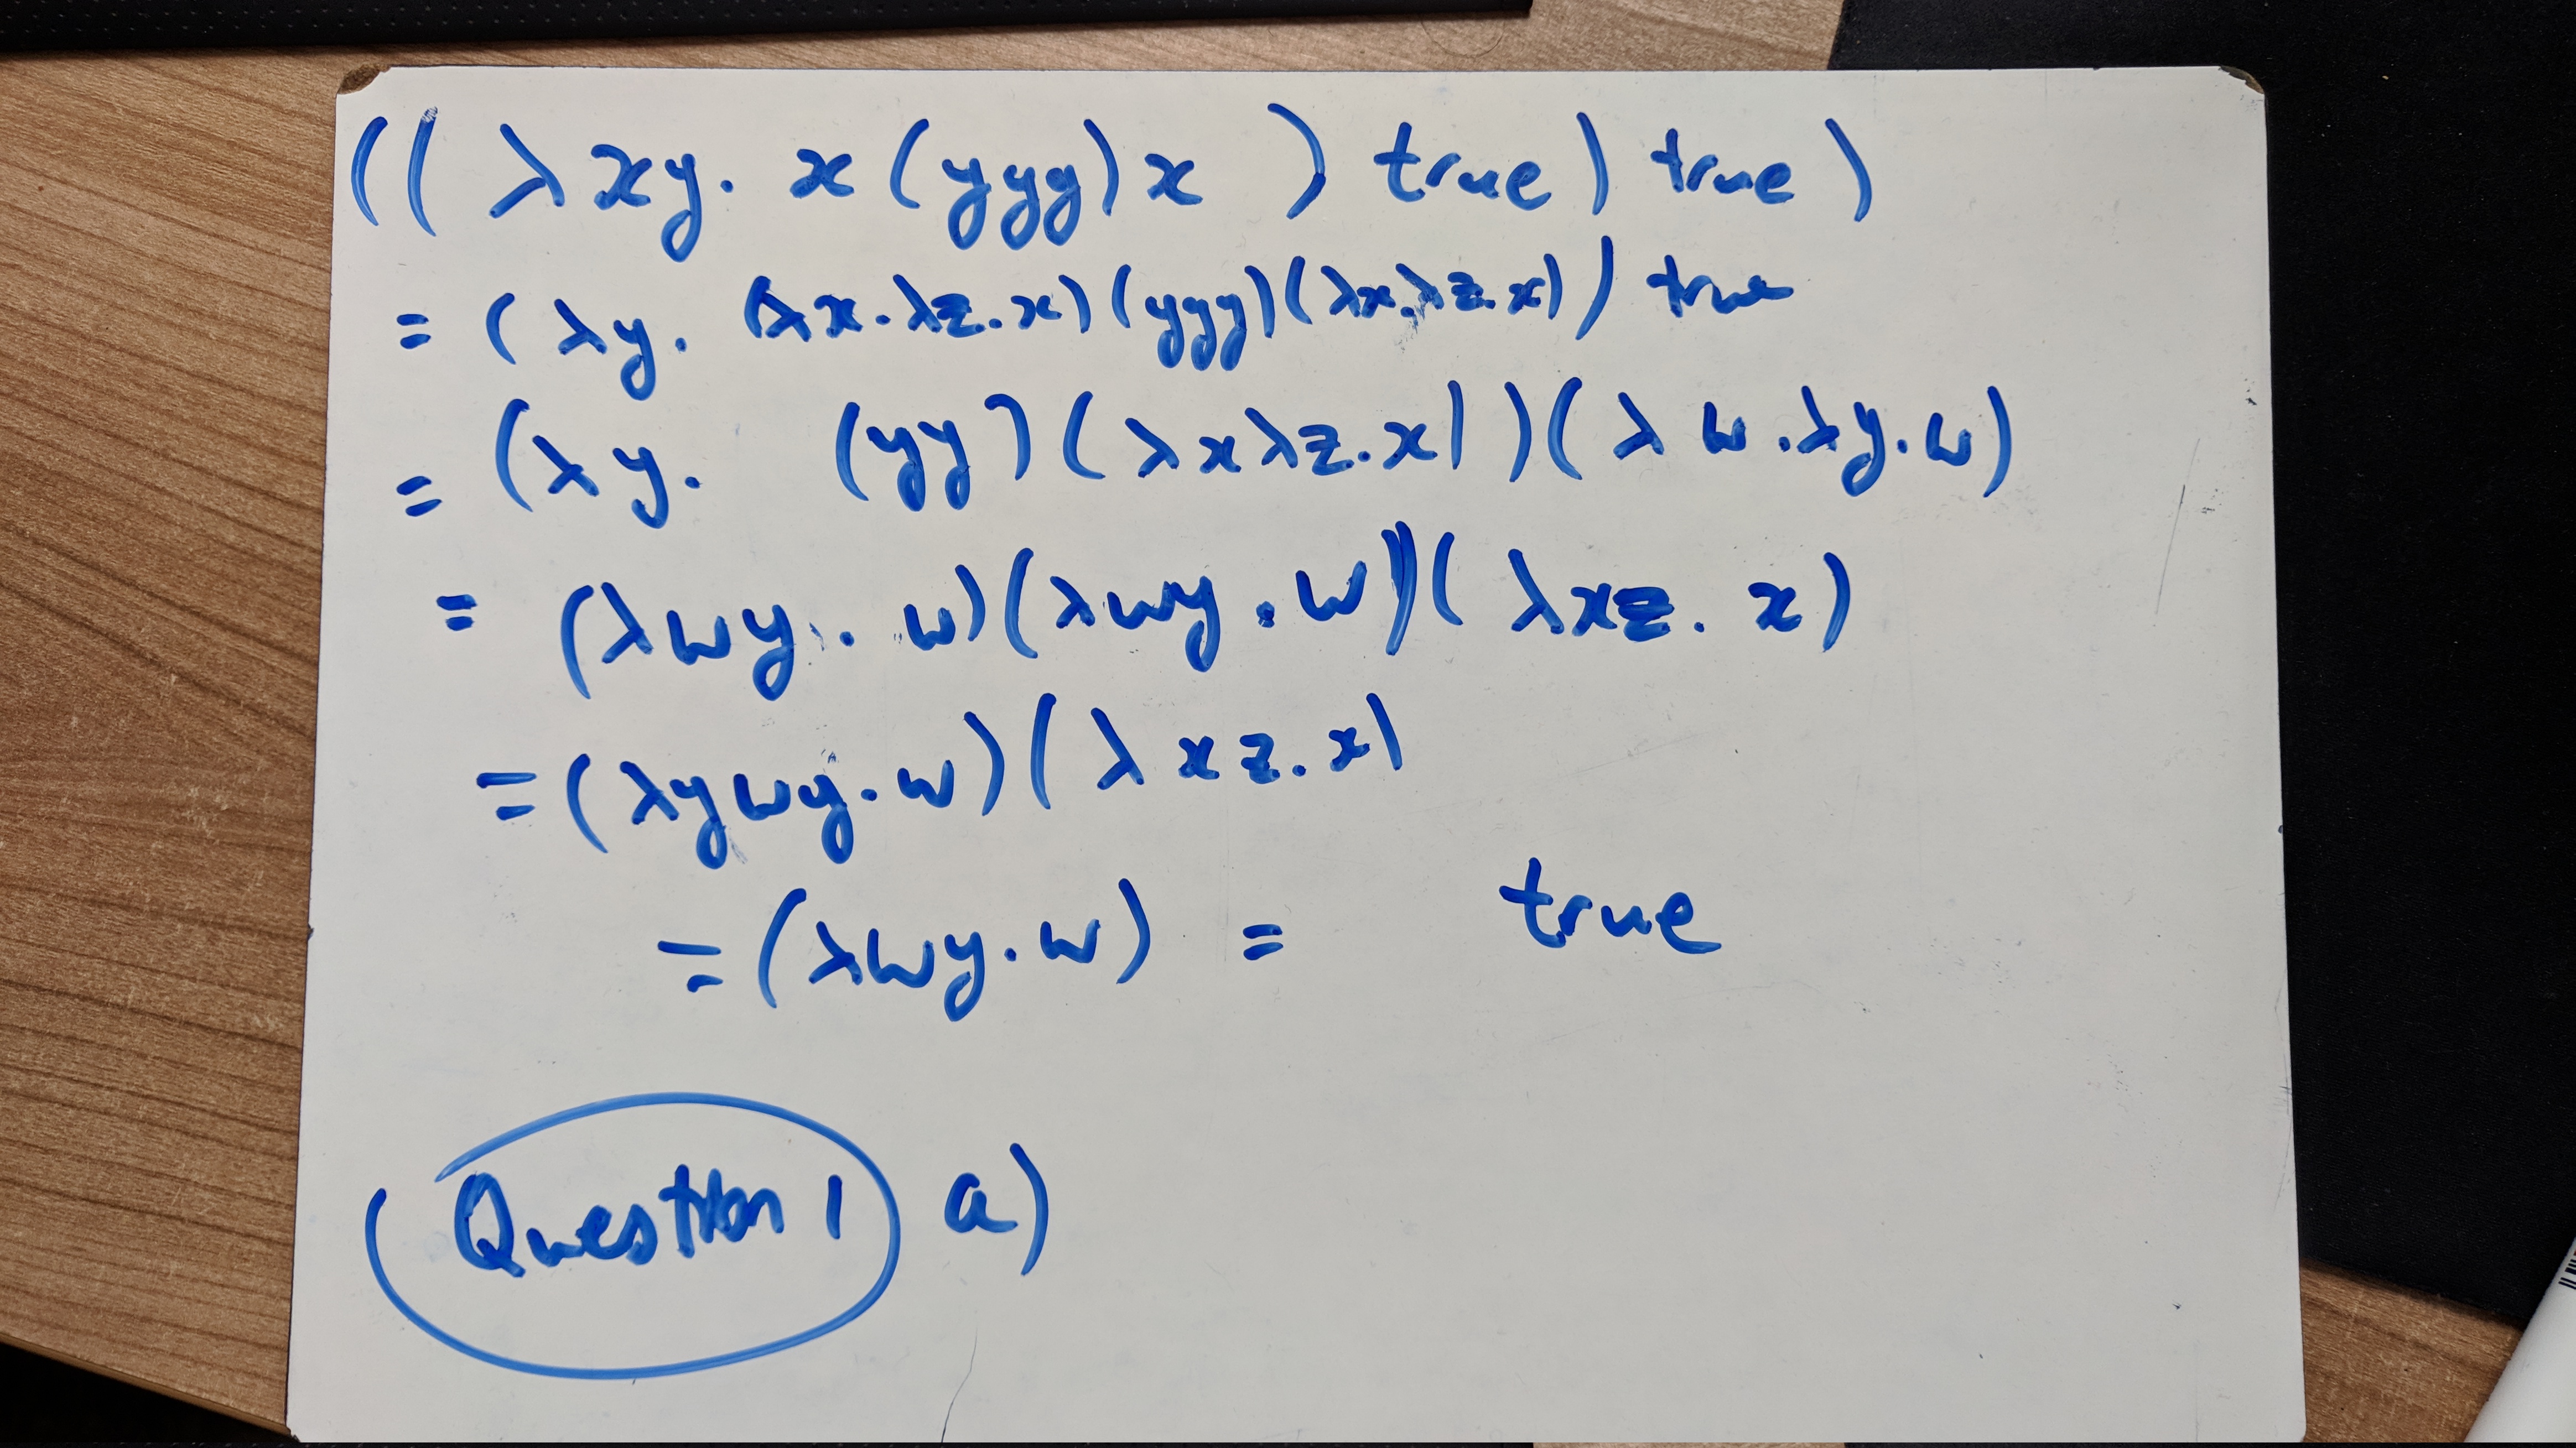 (( λxy. x(yyy)x ) true) true )
= (λy. (λx.λz.x)(yyy)(λx.λz.x)) true
= (λy. (yy)(λxλz.x))(λw.λy.w)
= (λwy. w)(λwy.w))(λxz. x)
= (λywy.w)(λxz.x)
= (λwy.w) = true
(Question 1 a)